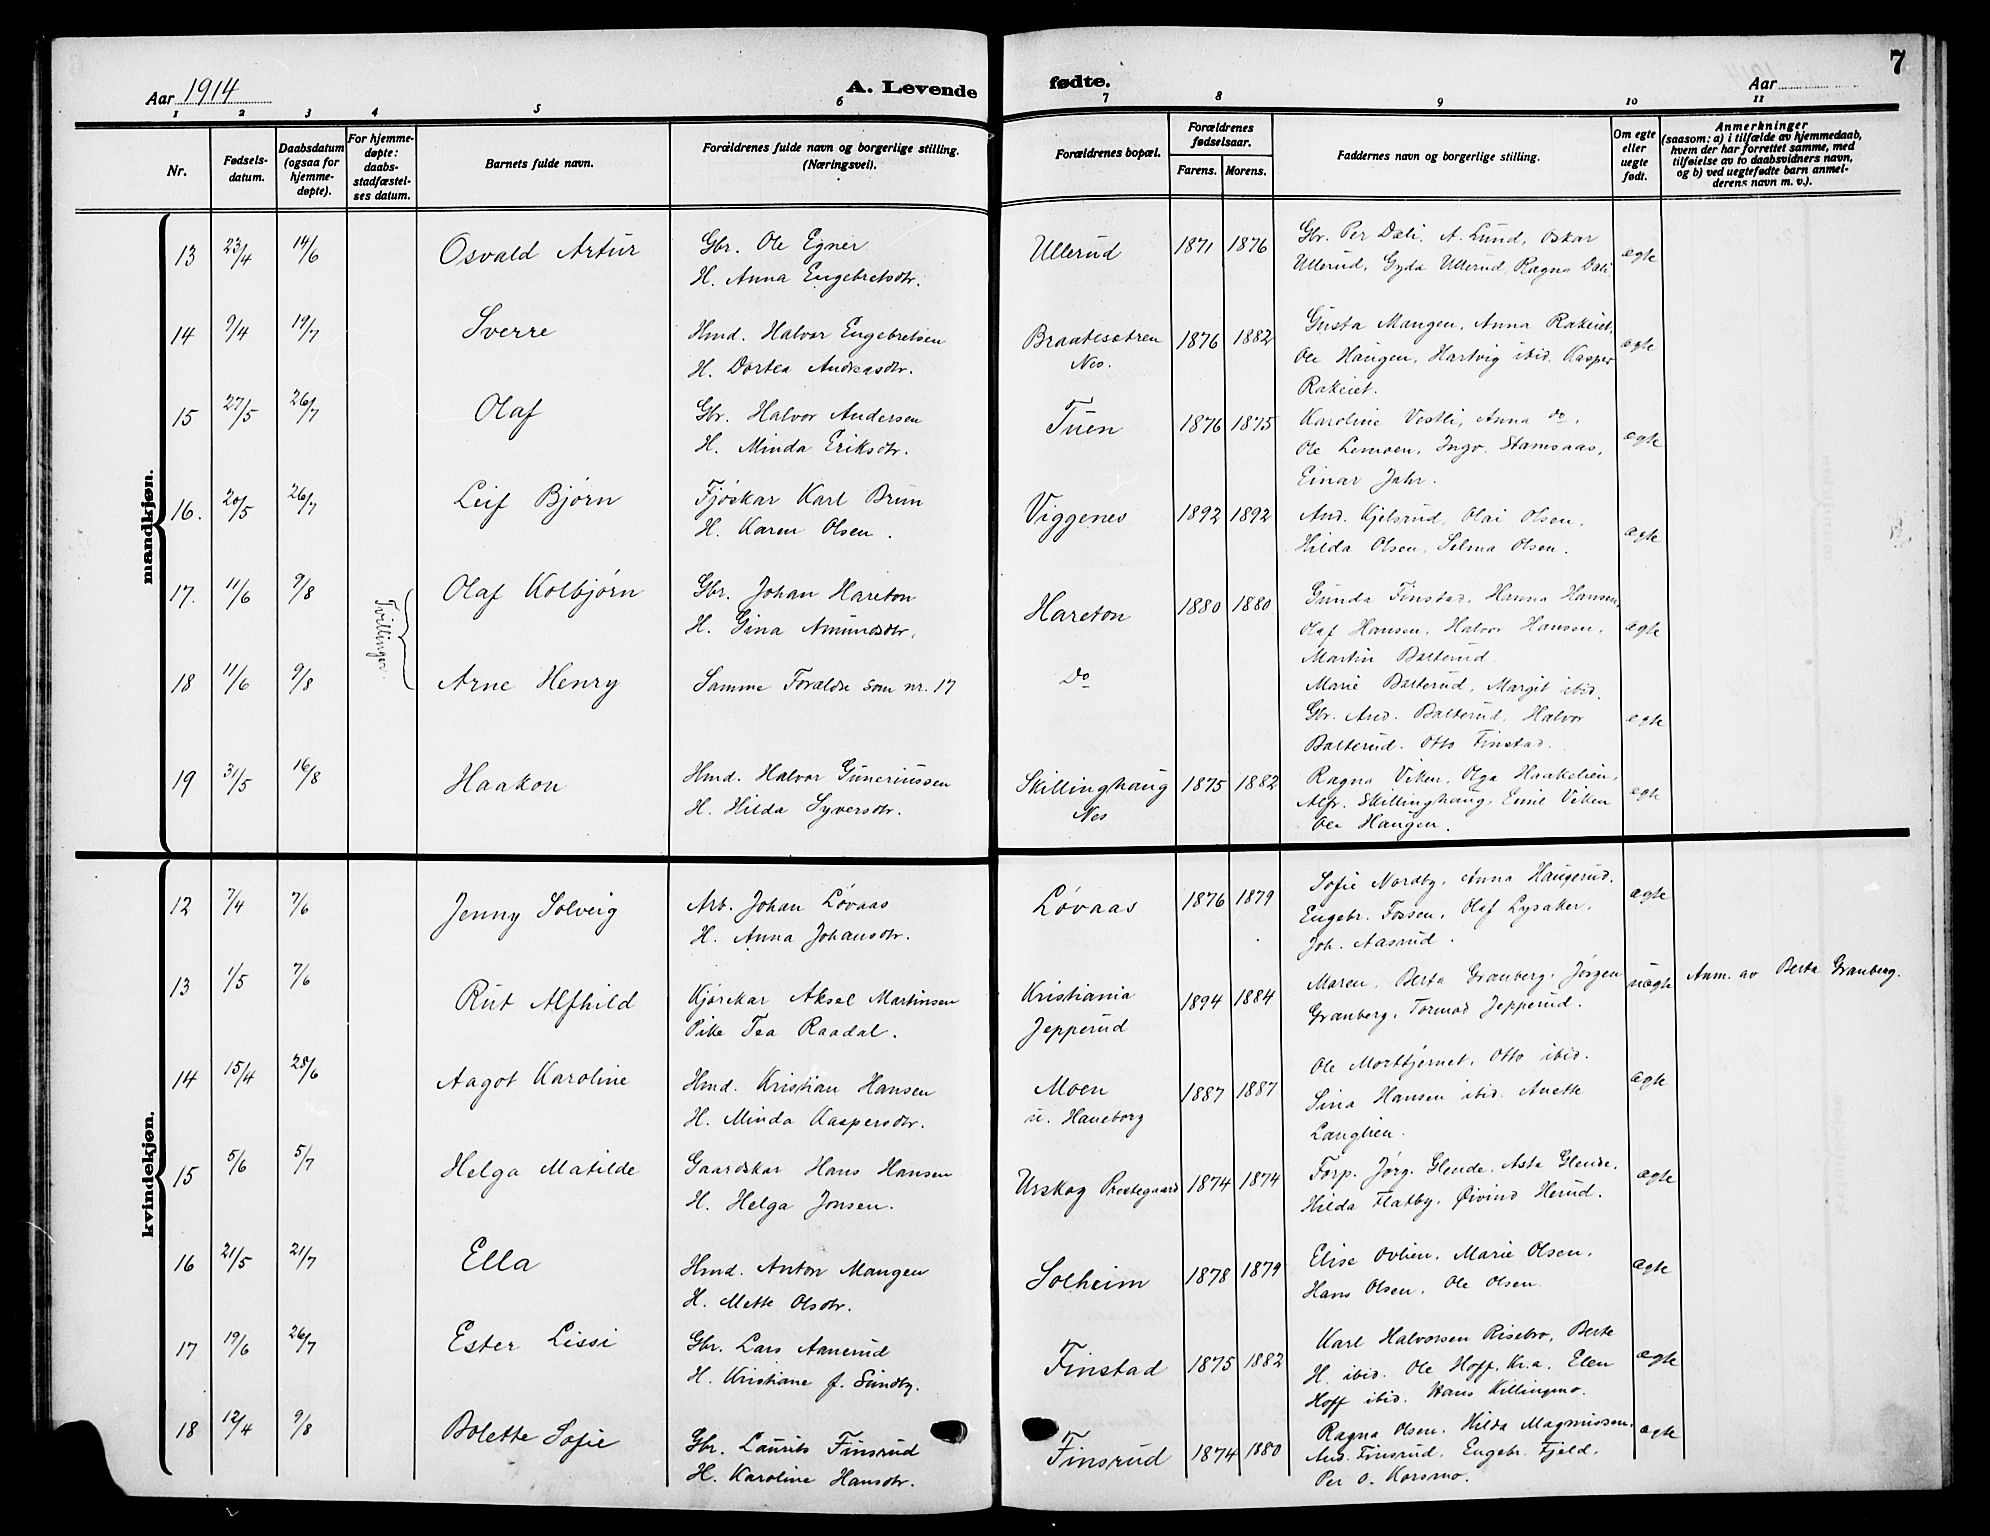 7
Aar 1914
A. Levende
fødte.
Aar
1 2 3 4 5 6 7 8 9 10 11
Nr.
Fødsels-
datum.
Daabsdatum
(ogsaa for
hjemme-
døpte).
For hjemme-
døpte:
daabs-
stadfæstel-
ses datum.
Barnets fulde navn.
Forældrenes fulde navn og borgerlige stilling.
(Næringsvei).
Forældrenes bopæl.
Forældrenes
fødselsaar.
Farens. Morens.
Faddernes navn og borgerlige stilling.
Om egte
eller
uegte
født.
Anmerkninger
(saasom: a) i tilfælde av hjemmedaab,
hvem der har forrettet samme, med
tilføielse av to daabsvidners navn,
og b) ved uegtefødte barn anmel-
derens navn m. v.).
mandkjøn.
13 23/4 14/6 Osvald Artur Gbr. Ole Egner Ullerud 1871 1876 Gbr. Per Dali, A. Lund, Oskar ægte
H. Anna Engebretsdtr. Ullerud, Gyda Ullerud, Ragna Dali
14 9/4 19/7 Sverre Hmd. Halvor Engebretsen Braatesætren 1876 1882 Gusta Mangen, Anna Rakeiet, ægte
H. Dortea Andreasdtr. Nes. Ole Haugen, Hartvig ibid. Kasper
Rakeiet.
15 27/5 26/7 Olaf Gbr. Halvor Andersen Tuen 1876 1875 Karoline Vestli, Anna do, ægte
H. Minda Eriksdtr. Ole Lemoen, Ingv. Stamsaas,
Einar Jahr.
16. 20/5 26/7 Leif Bjørn Fjøskar Karl Brun Viggenes 1892 1892 And. Kjelsrud, Olai Olsen, ægte
H. Karen Olsen. Hilda Olsen, Selma Olsen.
17. 11/6 9/8 Tvillinger Olaf Kolbjørn Gbr. Johan Hareton Hareton 1880 1880 Gunda Finstad, Hanna Hansen, ægte
H. Gina Amundsdtr. Olaf Hansen, Halvor Hansen,
Martin Balterud
18 11/6 9/8 Arne Henry Samme Forældre som nr. 17 Do Marie Balterud, Margit ibid. ægte
Gbr. And. Balterud, Halvor
Balterud. Otto Finstad.
19 31/5 16/8 Haakon Hmd. Halvor Guneriussen Skillinghaug 1875 1882 Ragna Viken, Olga Haakelien, ægte
H. Hilda Syversdtr. Nes Alfr. Skillinghaug, Emil Viken
Ole Haugen.
kvindekjøn.
12 7/4 7/6 Jenny Solveig Arb. Johan Løvaas Løvaas 1876 1879 Sofie Nordby, Anna Haugerud. ægte
H. Anna Johansdtr. Engebr. Fossen, Olaf Lysaker,
Joh. Aasrud.
13 1/5 7/6 Rut Alfhild Kjørekar Aksel Martinsen Kristiania 1894 1884 Maren, Berta Granberg, Jørgen uægte Anm. av Berta Granberg.
Pike Tea Raadal. Jepperud Granberg, Tormod Jepperud.
14 15/4 28/6 Aagot Karoline Hmd. Kristian Hansen Moen 1887 1887 Ole Morttjernet, Otto ibid. ægte
H. Minda Kaspersdtr. u. Haneborg Sina Hansen ibid. Anette
Langlien.
15 5/6 5/7 Helga Matilde Gaardskar Hans Hansen Urskog Prestegaard 1874 1874 Forp. Jørg. Glende, Asta Glende, ægte
H. Helga Jonsen. Hilda Flatby, Øivind Herud.
16 21/5 21/7 Ella Hmd. Anton Mangen Solheim 1878 1879 Elise Ovlien, Marie Olsen, ægte
H. Mette Olsdtr. Hans Olsen, Ole Olsen.
17 19/6 26/7 Ester Lissi Gbr. Lars Aanerud Finstad 1875 1882 Karl Halvorsen Risebro, Berte ægte
H. Kristiane f. Sundby. H. ibid. Ole Hoff, Kr.a. Elen
Hoff ibid. Hans Killingmo.
18 12/4 9/8 Bolette Sofie Gbr. Laurits Finsrud Finsrud 1874 1880 Ragna Olsen, Hilda Magnussen, ægte
H. Karoline Hansdtr. And. Finsrud, Engebr. Fjeld,
Per O. Korsmo.